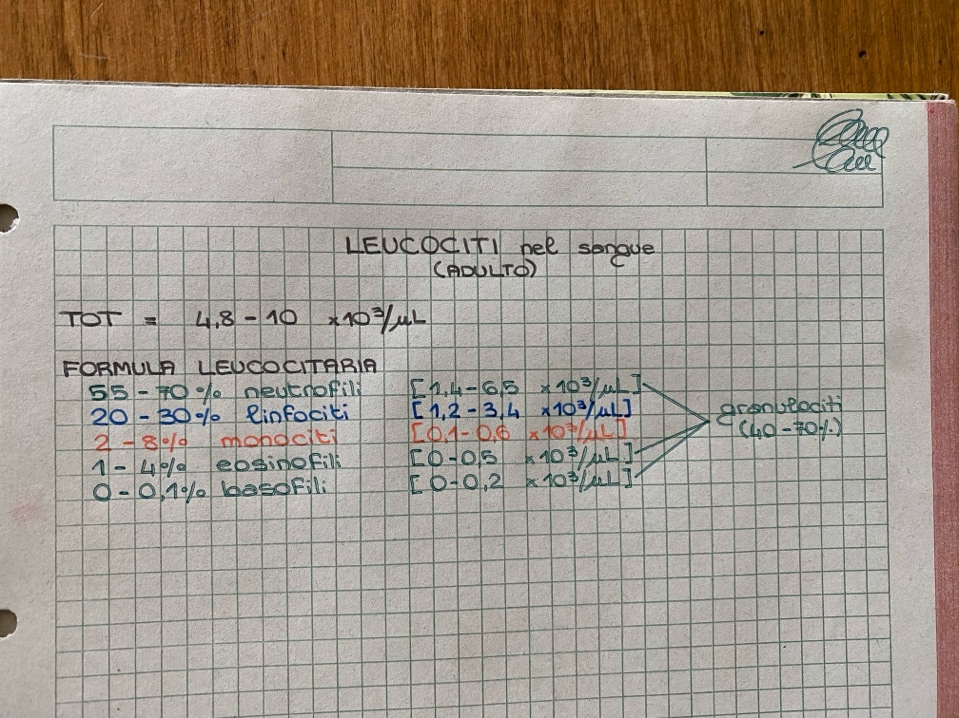 LEUCOCITI nel sangue
(ADULTO)
TOT = 4,8 - 10 x10³/µL
FORMULA LEUCOCITARIA
55 - 70% neutrofili [1,4 - 6,5 x10³/µL]
20 - 30% linfociti [1,2 - 3,4 x10³/µL]
2 - 8% monociti [0,1 - 0,6 x10³/µL]
1 - 4% eosinofili [0 - 0,5 x10³/µL]
0 - 0,1% basofili [0 - 0,2 x10³/µL]
granulociti
(40 - 70%)